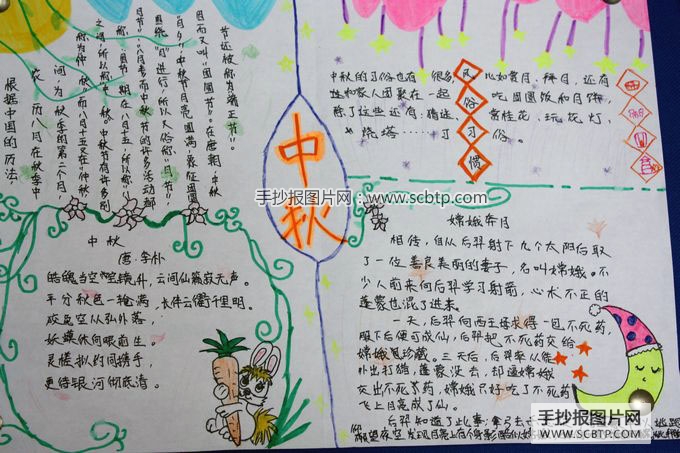 根据中国的历法
农历八月在秋季中
间为秋季的第二个月，
称为“仲秋”而八月十五又在“仲秋”
之
所以称“中秋”。中秋节有许多别
八月十五，所以称
“八月节”“八月半”而中秋节的许多活动都
围绕“月”进行，所以又俗称“月节”
“月夕”中秋节月亮圆满，象征团圆
因而又叫“团圆节”。在唐朝，中秋
节还被称为端正节”。
中秋
中秋的习俗也有很多，比如赏月、拜月，还有
在一起吃团圆饭和月饼，
除了这些还有：猜谜、赏桂花、玩花灯、
烧塔……习俗。
风俗习惯
中秋
唐·李朴
皓魄当空宝镜升，云间仙籁寂无声。
平分秋色一轮满，长伴云衢千里明。
狡兔空从弦外落，
妖蟆休向眼前生。
灵槎拟约同携手，
更待银河彻底清。
嫦娥奔月
相传，自从后羿射下九个太阳后取
了一位善良美丽的妻子，名叫嫦娥。不
少人前来向后羿学习射箭，心术不正的
蓬蒙也混了进来。
一天，后羿向西王母求得一包不死药，
服下后便可成仙，后羿把不死药交给
嫦娥珍藏。三天后，后羿率从徒
外出打猎，蓬蒙没去，却逼嫦娥
交出不死药，嫦娥只好吃了不死药
飞上月亮成了仙。
后羿知道了此事，拿弓去
手抄报图片网：www.scbtp.com
手抄报图片网
WWW.SCBTP.COM